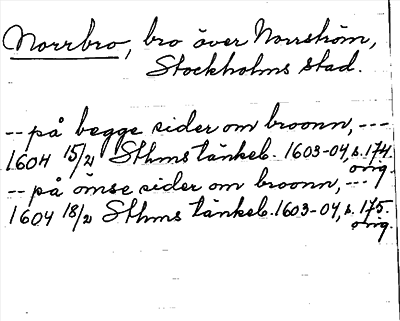 Norrbro, bro över Norrström,
Stockholms stad.
-- på begge sider om broonn, ---
1604 15/2 Sthms tänkeb. 1603-04, s. 174.
orig.
-- på ömse sider om broonn, ---
1604 18/2 Sthms tänkeb. 1603-04, s. 175.
orig.